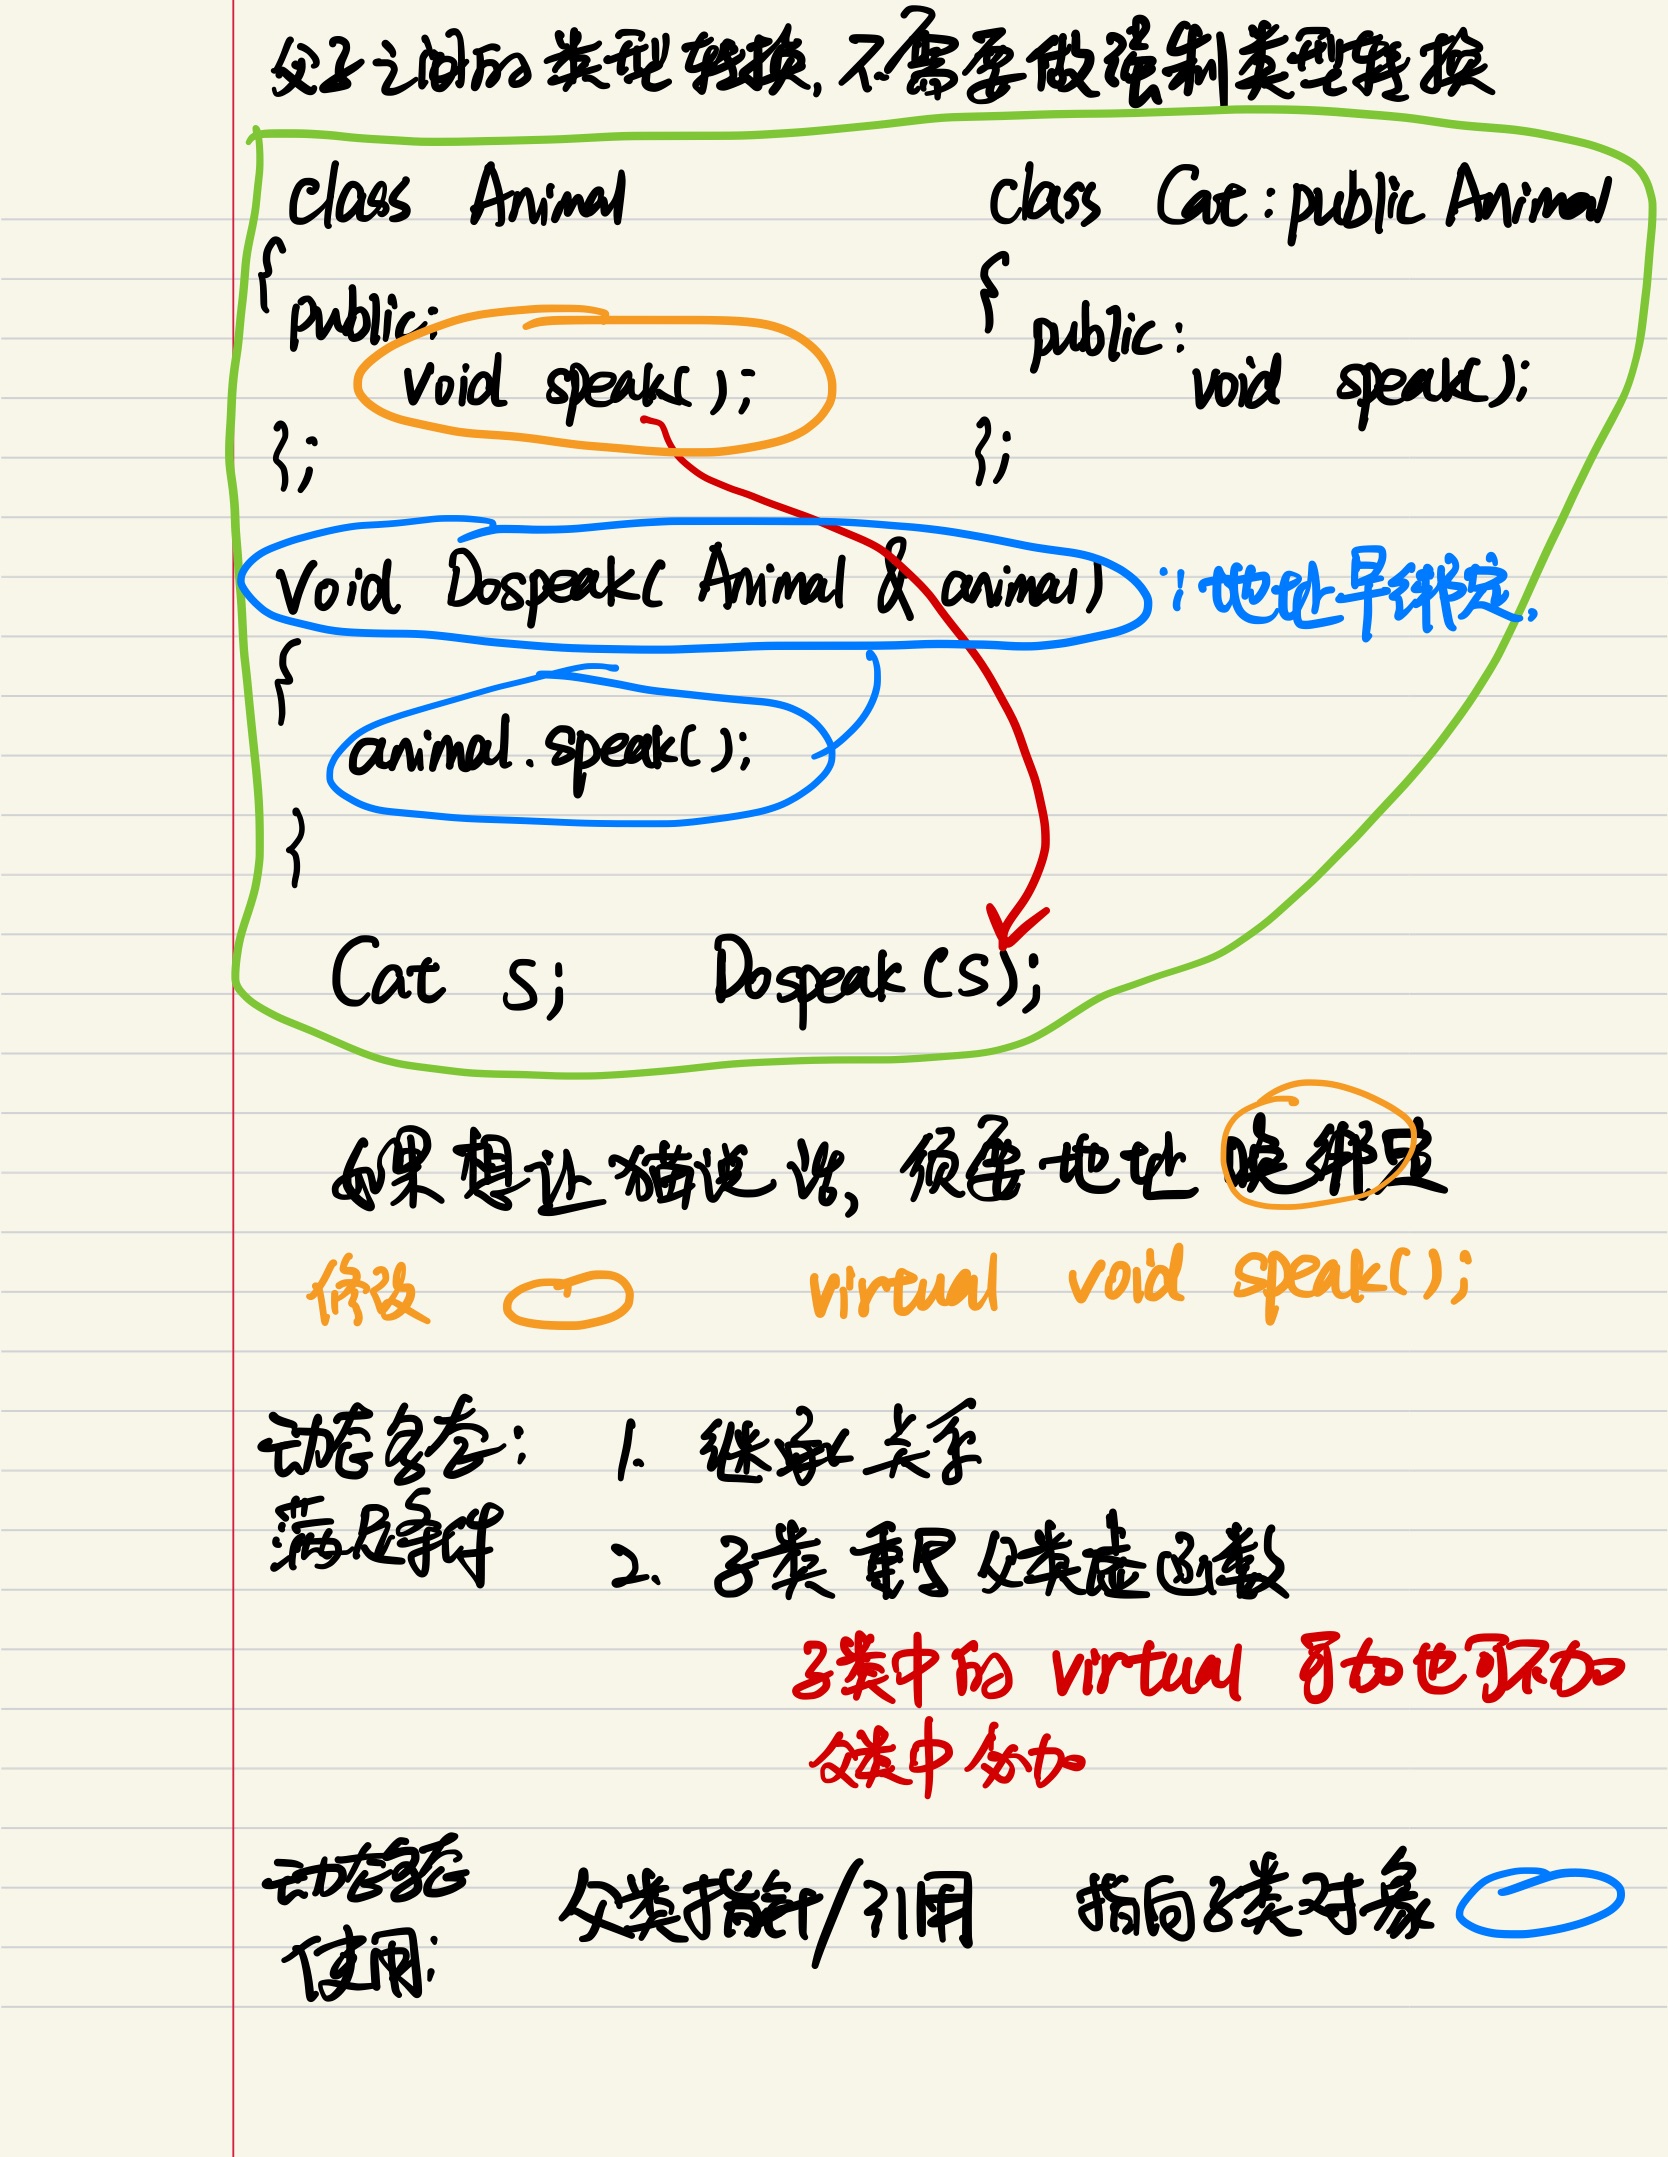 父子之间的类型转换,不需要做强制类型转换
class Animal
{
public:
void speak();
};
class Cat:public Animal
{
public:
void speak();
};
void Dospeak(Animal & animal) ∵地址早绑定.
{
animal.speak();
}
Cat s; Dospeak(s);
如果想让猫说话,须要地址晚绑定
修改 virtual void speak();
动态多态: 1. 继承关系
满足条件 2. 子类重写父类虚函数
子类中的 virtual 可加也可不加
父类中必加
动态多态 父类指针/引用 指向子类对象
使用: